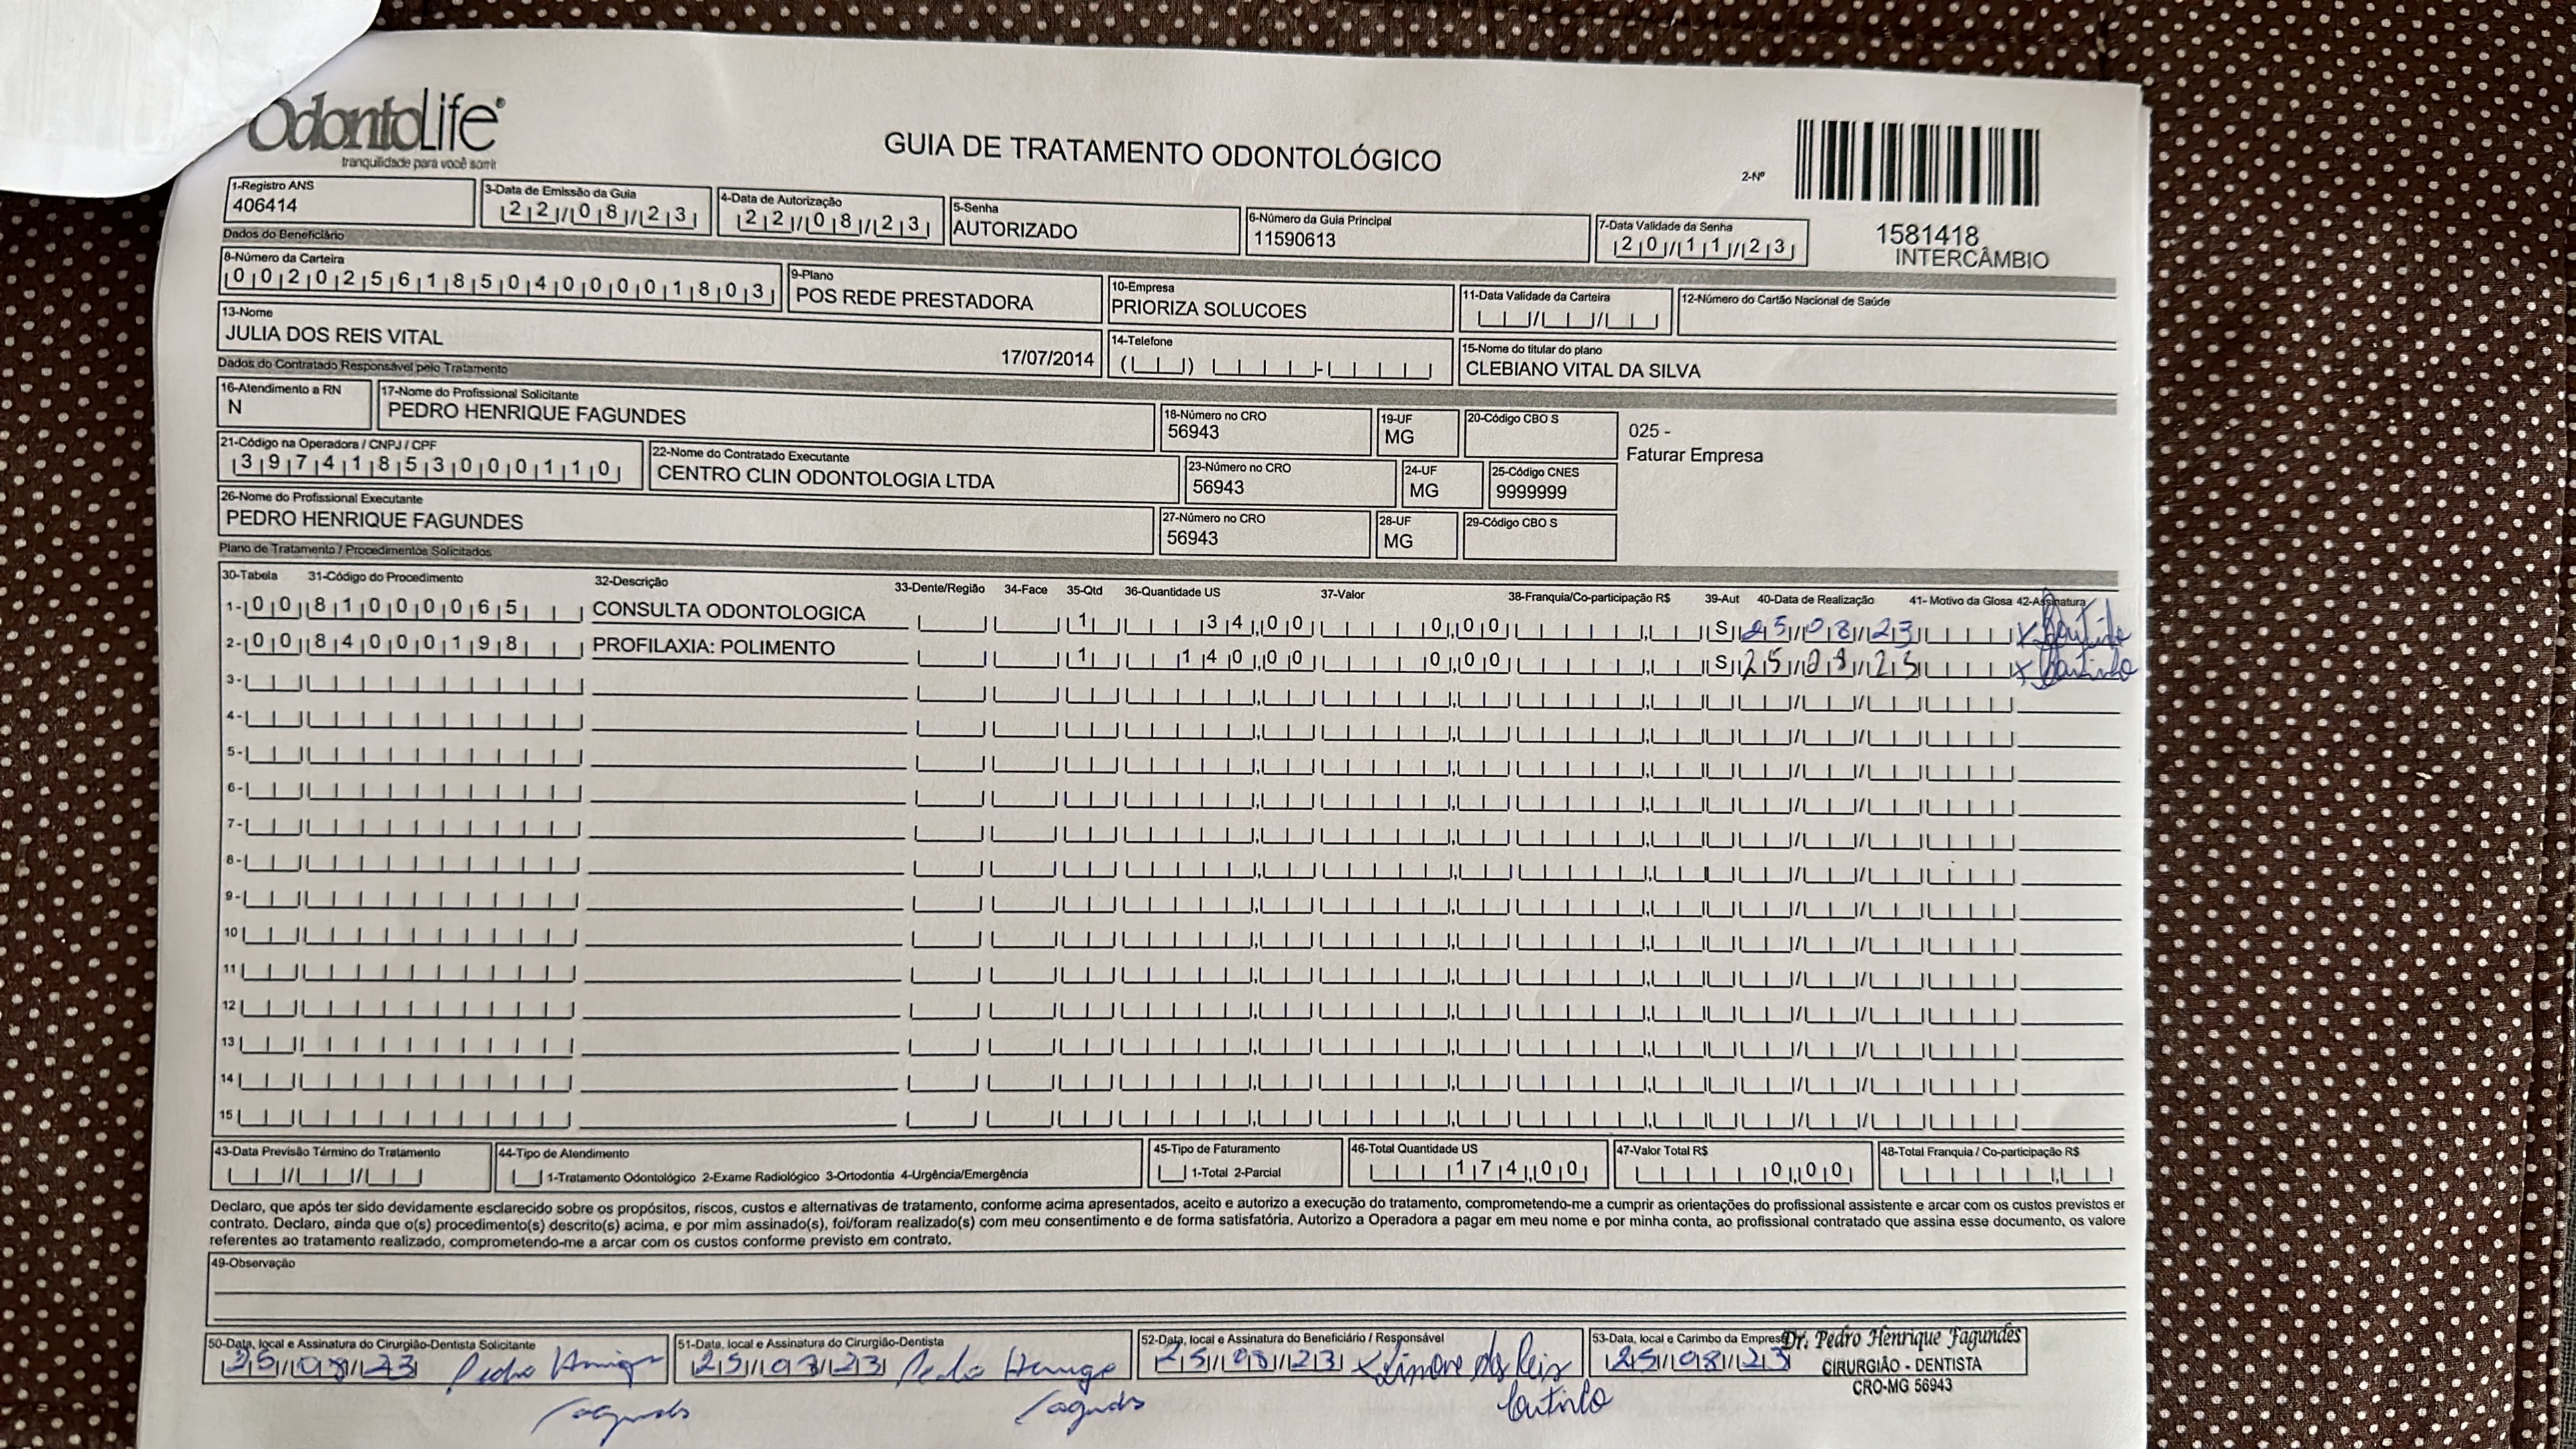 OdontoLife®
tranquilidade para você sorrir
GUIA DE TRATAMENTO ODONTOLÓGICO
2-Nº
1581418
INTERCÂMBIO
1-Registro ANS
406414
3-Data de Emissão da Guia
22/08/23
4-Data de Autorização
22/08/23
5-Senha
AUTORIZADO
6-Número da Guia Principal
11590613
7-Data Validade da Senha
20/11/23
Dados do Beneficiário
8-Número da Carteira
00202561850400001803
9-Plano
POS REDE PRESTADORA
10-Empresa
PRIORIZA SOLUCOES
11-Data Validade da Carteira
12-Número do Cartão Nacional de Saúde
13-Nome
JULIA DOS REIS VITAL
17/07/2014
14-Telefone
15-Nome do titular do plano
CLEBIANO VITAL DA SILVA
Dados do Contratado Responsável pelo Tratamento
16-Atendimento a RN
N
17-Nome do Profissional Solicitante
PEDRO HENRIQUE FAGUNDES
18-Número no CRO
56943
19-UF
MG
20-Código CBO S
025 -
Faturar Empresa
21-Código na Operadora / CNPJ / CPF
39741853000110
22-Nome do Contratado Executante
CENTRO CLIN ODONTOLOGIA LTDA
23-Número no CRO
56943
24-UF
MG
25-Código CNES
9999999
26-Nome do Profissional Executante
PEDRO HENRIQUE FAGUNDES
27-Número no CRO
56943
28-UF
MG
29-Código CBO S
Plano de Tratamento / Procedimentos Solicitados
30-Tabela 31-Código do Procedimento 32-Descrição 33-Dente/Região 34-Face 35-Qtd 36-Quantidade US 37-Valor 38-Franquia/Co-participação R$ 39-Aut 40-Data de Realização 41- Motivo da Glosa 42-Assinatura
1- 00 81000065 CONSULTA ODONTOLOGICA 1 34,00 0,00 S 25/08/23 x Coutinho
2- 00 84000198 PROFILAXIA: POLIMENTO 1 140,00 0,00 S 25/08/23 x Coutinho
3-
4-
5-
6-
7-
8-
9-
10
11
12
13
14
15
43-Data Previsão Término do Tratamento
44-Tipo de Atendimento
1-Tratamento Odontológico 2-Exame Radiológico 3-Ortodontia 4-Urgência/Emergência
45-Tipo de Faturamento
1-Total 2-Parcial
46-Total Quantidade US
174,00
47-Valor Total R$
0,00
48-Total Franquia / Co-participação R$
Declaro, que após ter sido devidamente esclarecido sobre os propósitos, riscos, custos e alternativas de tratamento, conforme acima apresentados, aceito e autorizo a execução do tratamento, comprometendo-me a cumprir as orientações do profissional assistente e arcar com os custos previstos er
contrato. Declaro, ainda que o(s) procedimento(s) descrito(s) acima, e por mim assinado(s), foi/foram realizado(s) com meu consentimento e de forma satisfatória. Autorizo a Operadora a pagar em meu nome e por minha conta, ao profissional contratado que assina esse documento, os valore
referentes ao tratamento realizado, comprometendo-me a arcar com os custos conforme previsto em contrato.
49-Observação
50-Data, local e Assinatura do Cirurgião-Dentista Solicitante
25/08/23 Pedro Henrique
Fagundes
51-Data, local e Assinatura do Cirurgião-Dentista
25/08/23 Pedro Henrique
Fagundes
52-Data, local e Assinatura do Beneficiário / Responsável
25/08/23 x Simone dos Reis
Coutinho
53-Data, local e Carimbo da Empresa
25/08/23
Dr. Pedro Henrique Fagundes
CIRURGIÃO - DENTISTA
CRO-MG 56943